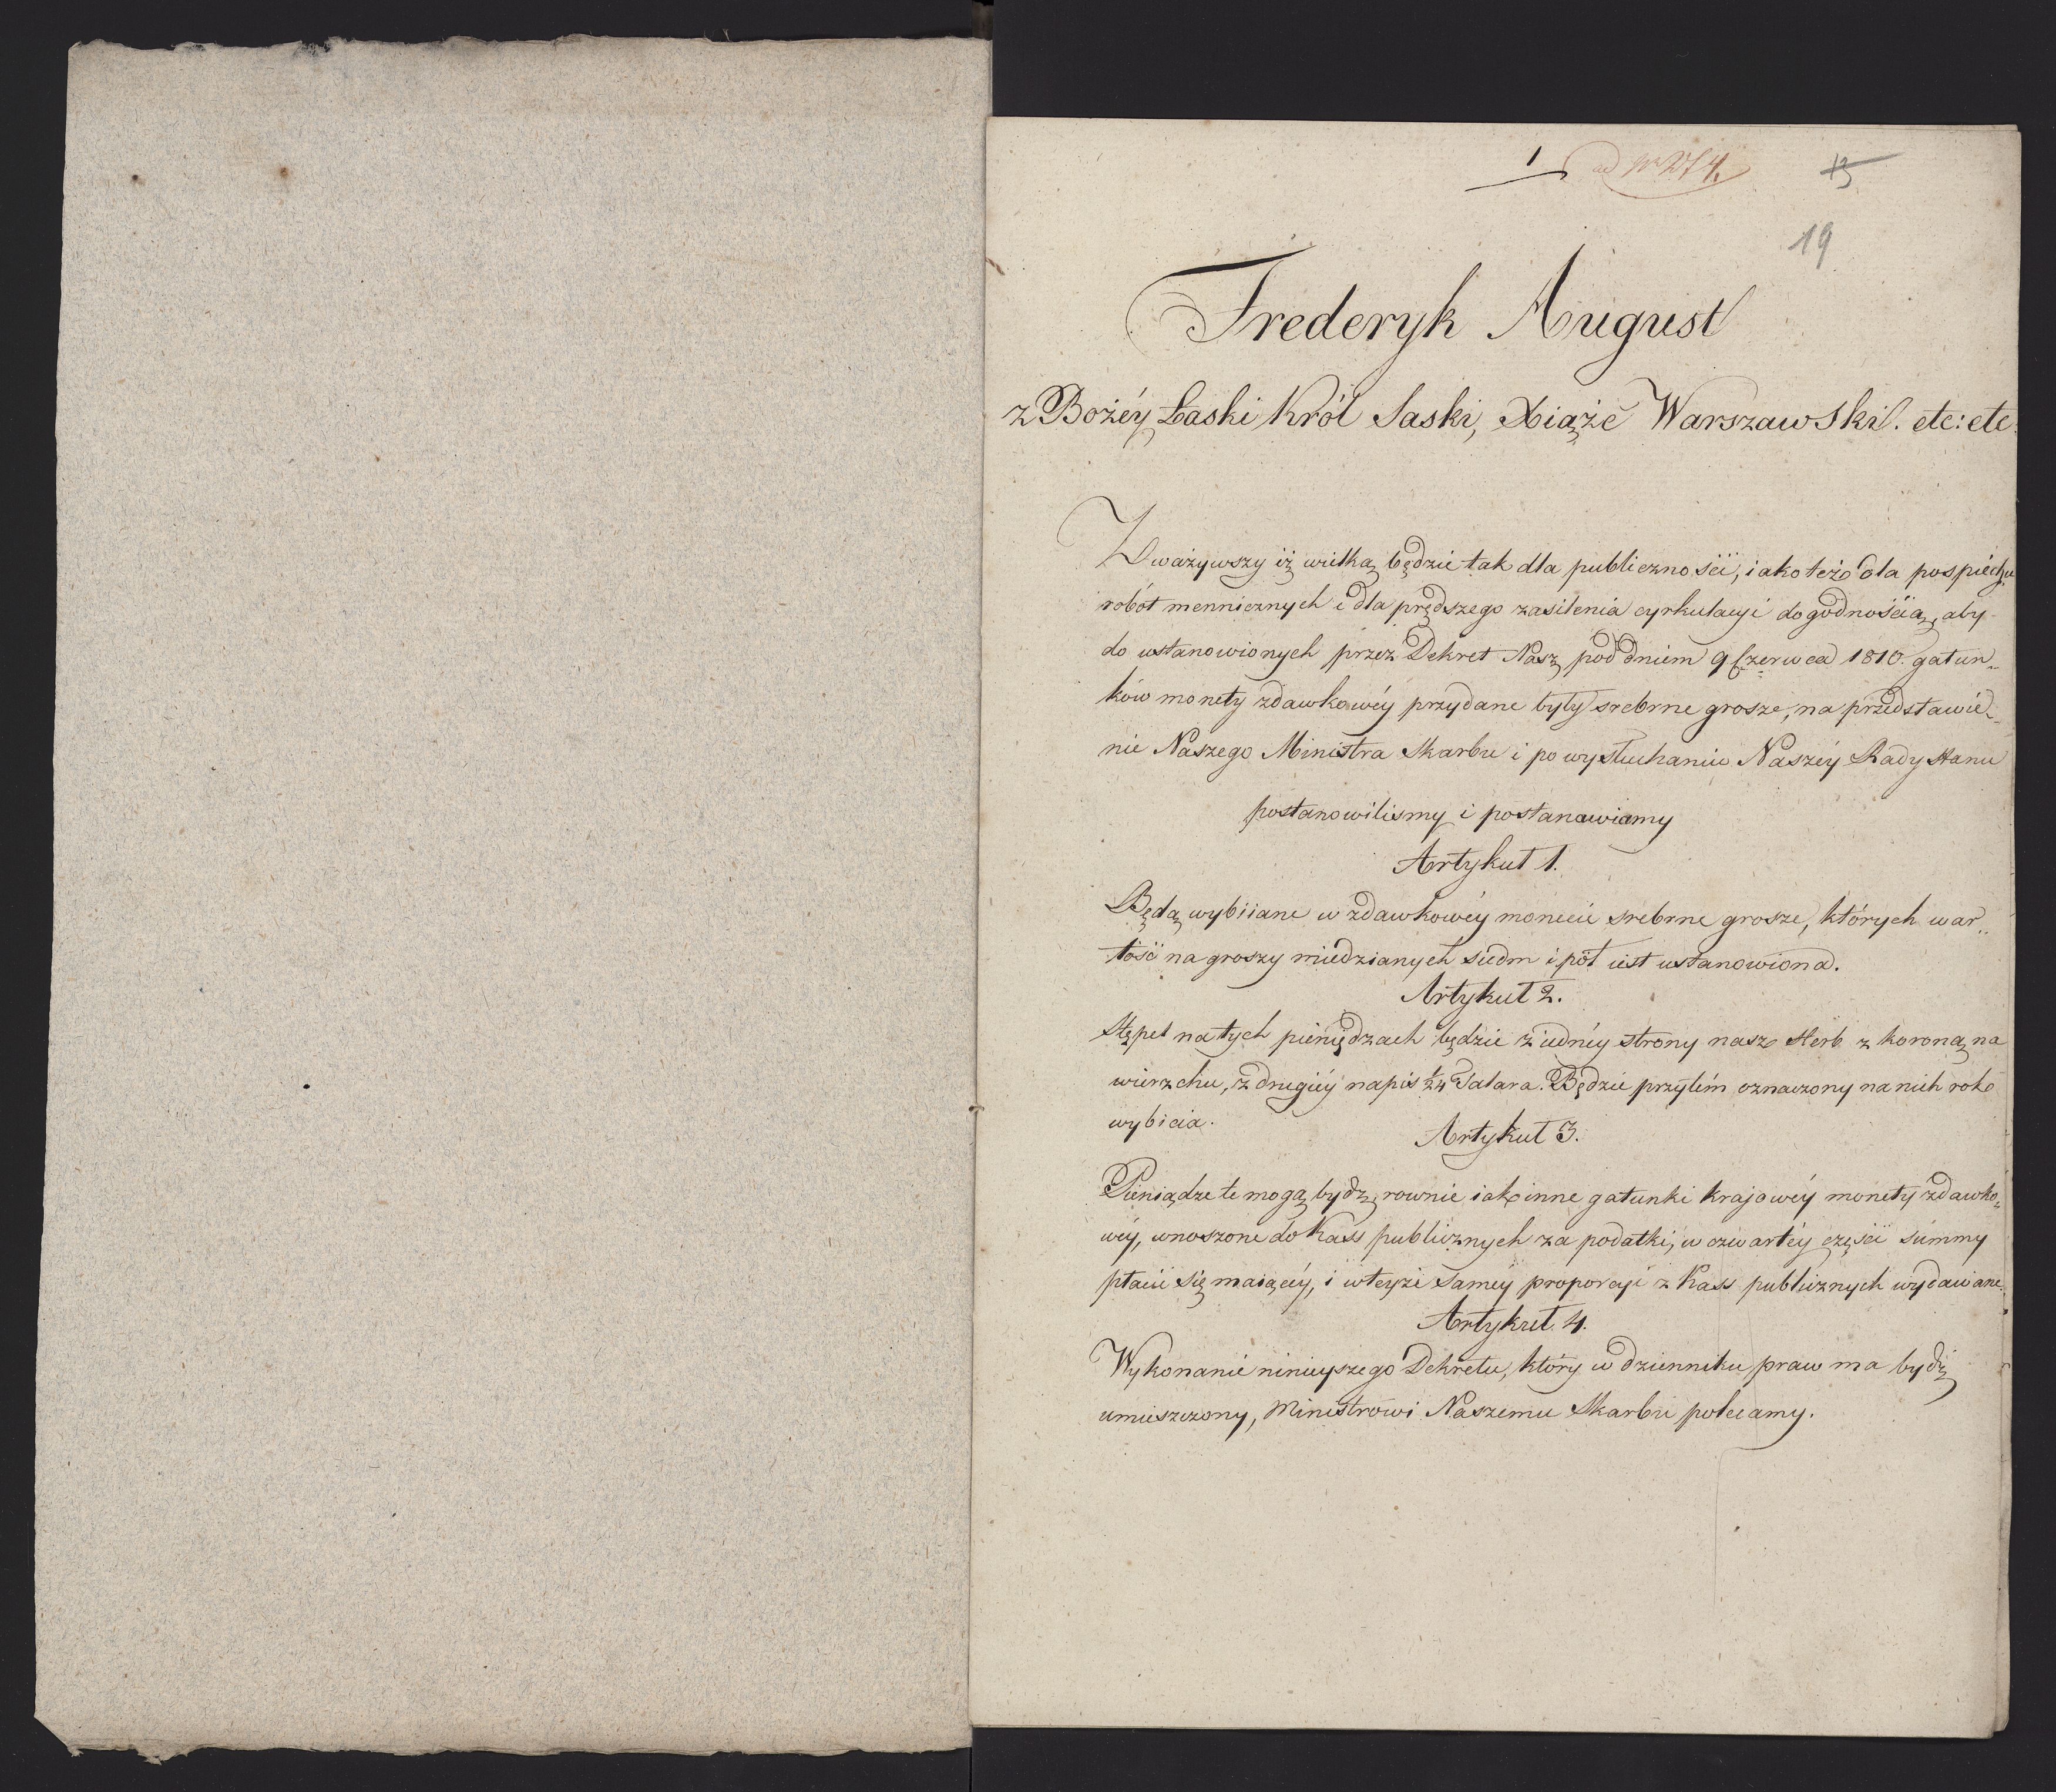 1
ad Nr
13
19
Frederyk August
z Bożéy Łaski Król Saski, Xiąże Warszawski. etc: etc:
Zważywszy iż wielką będzie tak dla publiczności, iako też dla pospiéchu
robót mennicznych i dla prędszego zasilenia cyrkulacyi dogodnością, aby
do ustanowionych przez Dekret Nasz pod dniem 9 Czerwca 1810. gatun„
ków monety zdawkowéy przydane były srebrne grosze, na przedstawié„
nie Naszego Ministra Skarbu i po wysłuchaniu Naszéy Rady Stanu
postanowilismy i postanawiamy
Artykuł 1.
Będą wybiiane w zdawkowéy monecie srebrne grosze, których war„
tość na groszy miedzianych siedm i pół iest ustanowiona.
Artykuł 2.
Stępel na tych pieniędzach będzie z iednéy strony nasz Herb z koroną na
wierzchu, z drugiéy napis 1/24 Talara. Będzie przytém oznaczony na nich rok
wybicia.
Artykuł 3.
Pieniądze te mogą bydź, rownie iak inne gatunki krajowéy monety zdawko„
wéy, wnoszone do Kass publicznych za podatki, w czwartéy części summy
płacić się maiącéy, i w teyże saméy proporcyi z Kass publicznych wydawane.
Artykuł 4.
Wykonanie ninieyszego Dekretu, który w dzienniku praw ma bydź
umieszczony, Ministrowi Naszemu Skarbu polecamy.